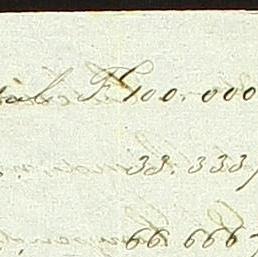 tal F 100.000
33.333
66.666